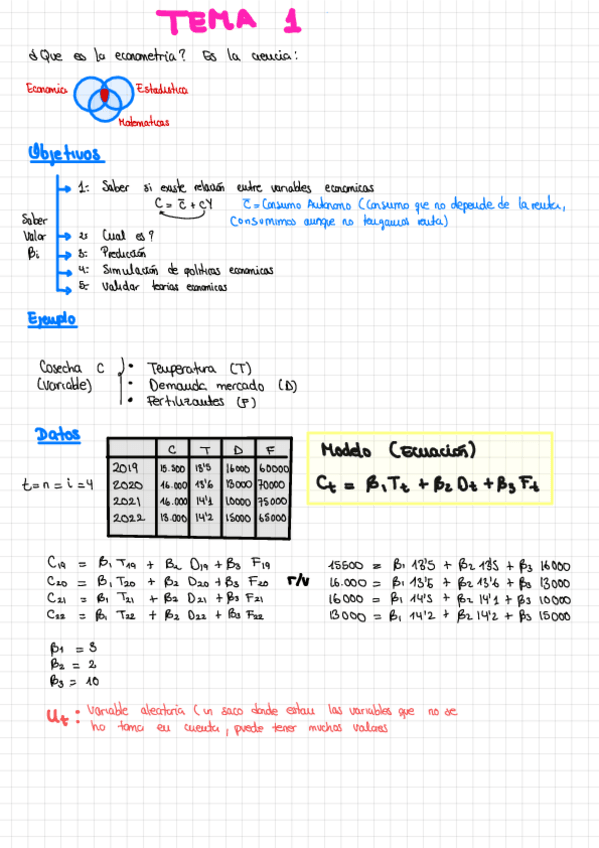 TEMA 1
¿Que es la econometria? Es la ciencia:
Economia
Estadistica
Matematicas
Objetivos
1: Saber si existe relación entre variables economicas
C = c̄ + cY
c̄ = Consumo Autonomo (Consumo que no depende de la renta,
Consumimos aunque no tengamos renta)
Saber
Valor
βi
2: Cual es?
3: Predicción
4: Simulación de politicas economicas
5: Validar teorias economicas
Ejemplo
Cosecha C
(Variable)
• Temperatura (T)
• Demanda mercado (D)
• Fertilizantes (F)
Datos
t = n = i = 4
C T D F
2019 15.500 13'5 16000 60000
2020 16.000 13'6 13000 70000
2021 16.000 14'1 10000 75000
2022 13.000 14'2 15000 65000
Modelo (Ecuación)
Ct = β1Tt + β2 Dt + β3 Ft
C19 = β1 T19 + β2 D19 + β3 F19
C20 = β1 T20 + β2 D20 + β3 F20
C21 = β1 T21 + β2 D21 + β3 F21
C22 = β1 T22 + β2 D22 + β3 F22
r/v
15500 = β1 13'5 + β2 13'5 + β3 16000
16.000 = β1 13'5 + β2 13'6 + β3 13000
16000 = β1 14's + β2 14'1 + β3 10000
13000 = β1 14'2 + β2 14'2 + β3 15000
β1 = 3
β2 = 2
β3 = 10
Ut: Variable aleatoria (un saco donde estan las variables que no se
ho toma en cuenta, puede tener muchos valores